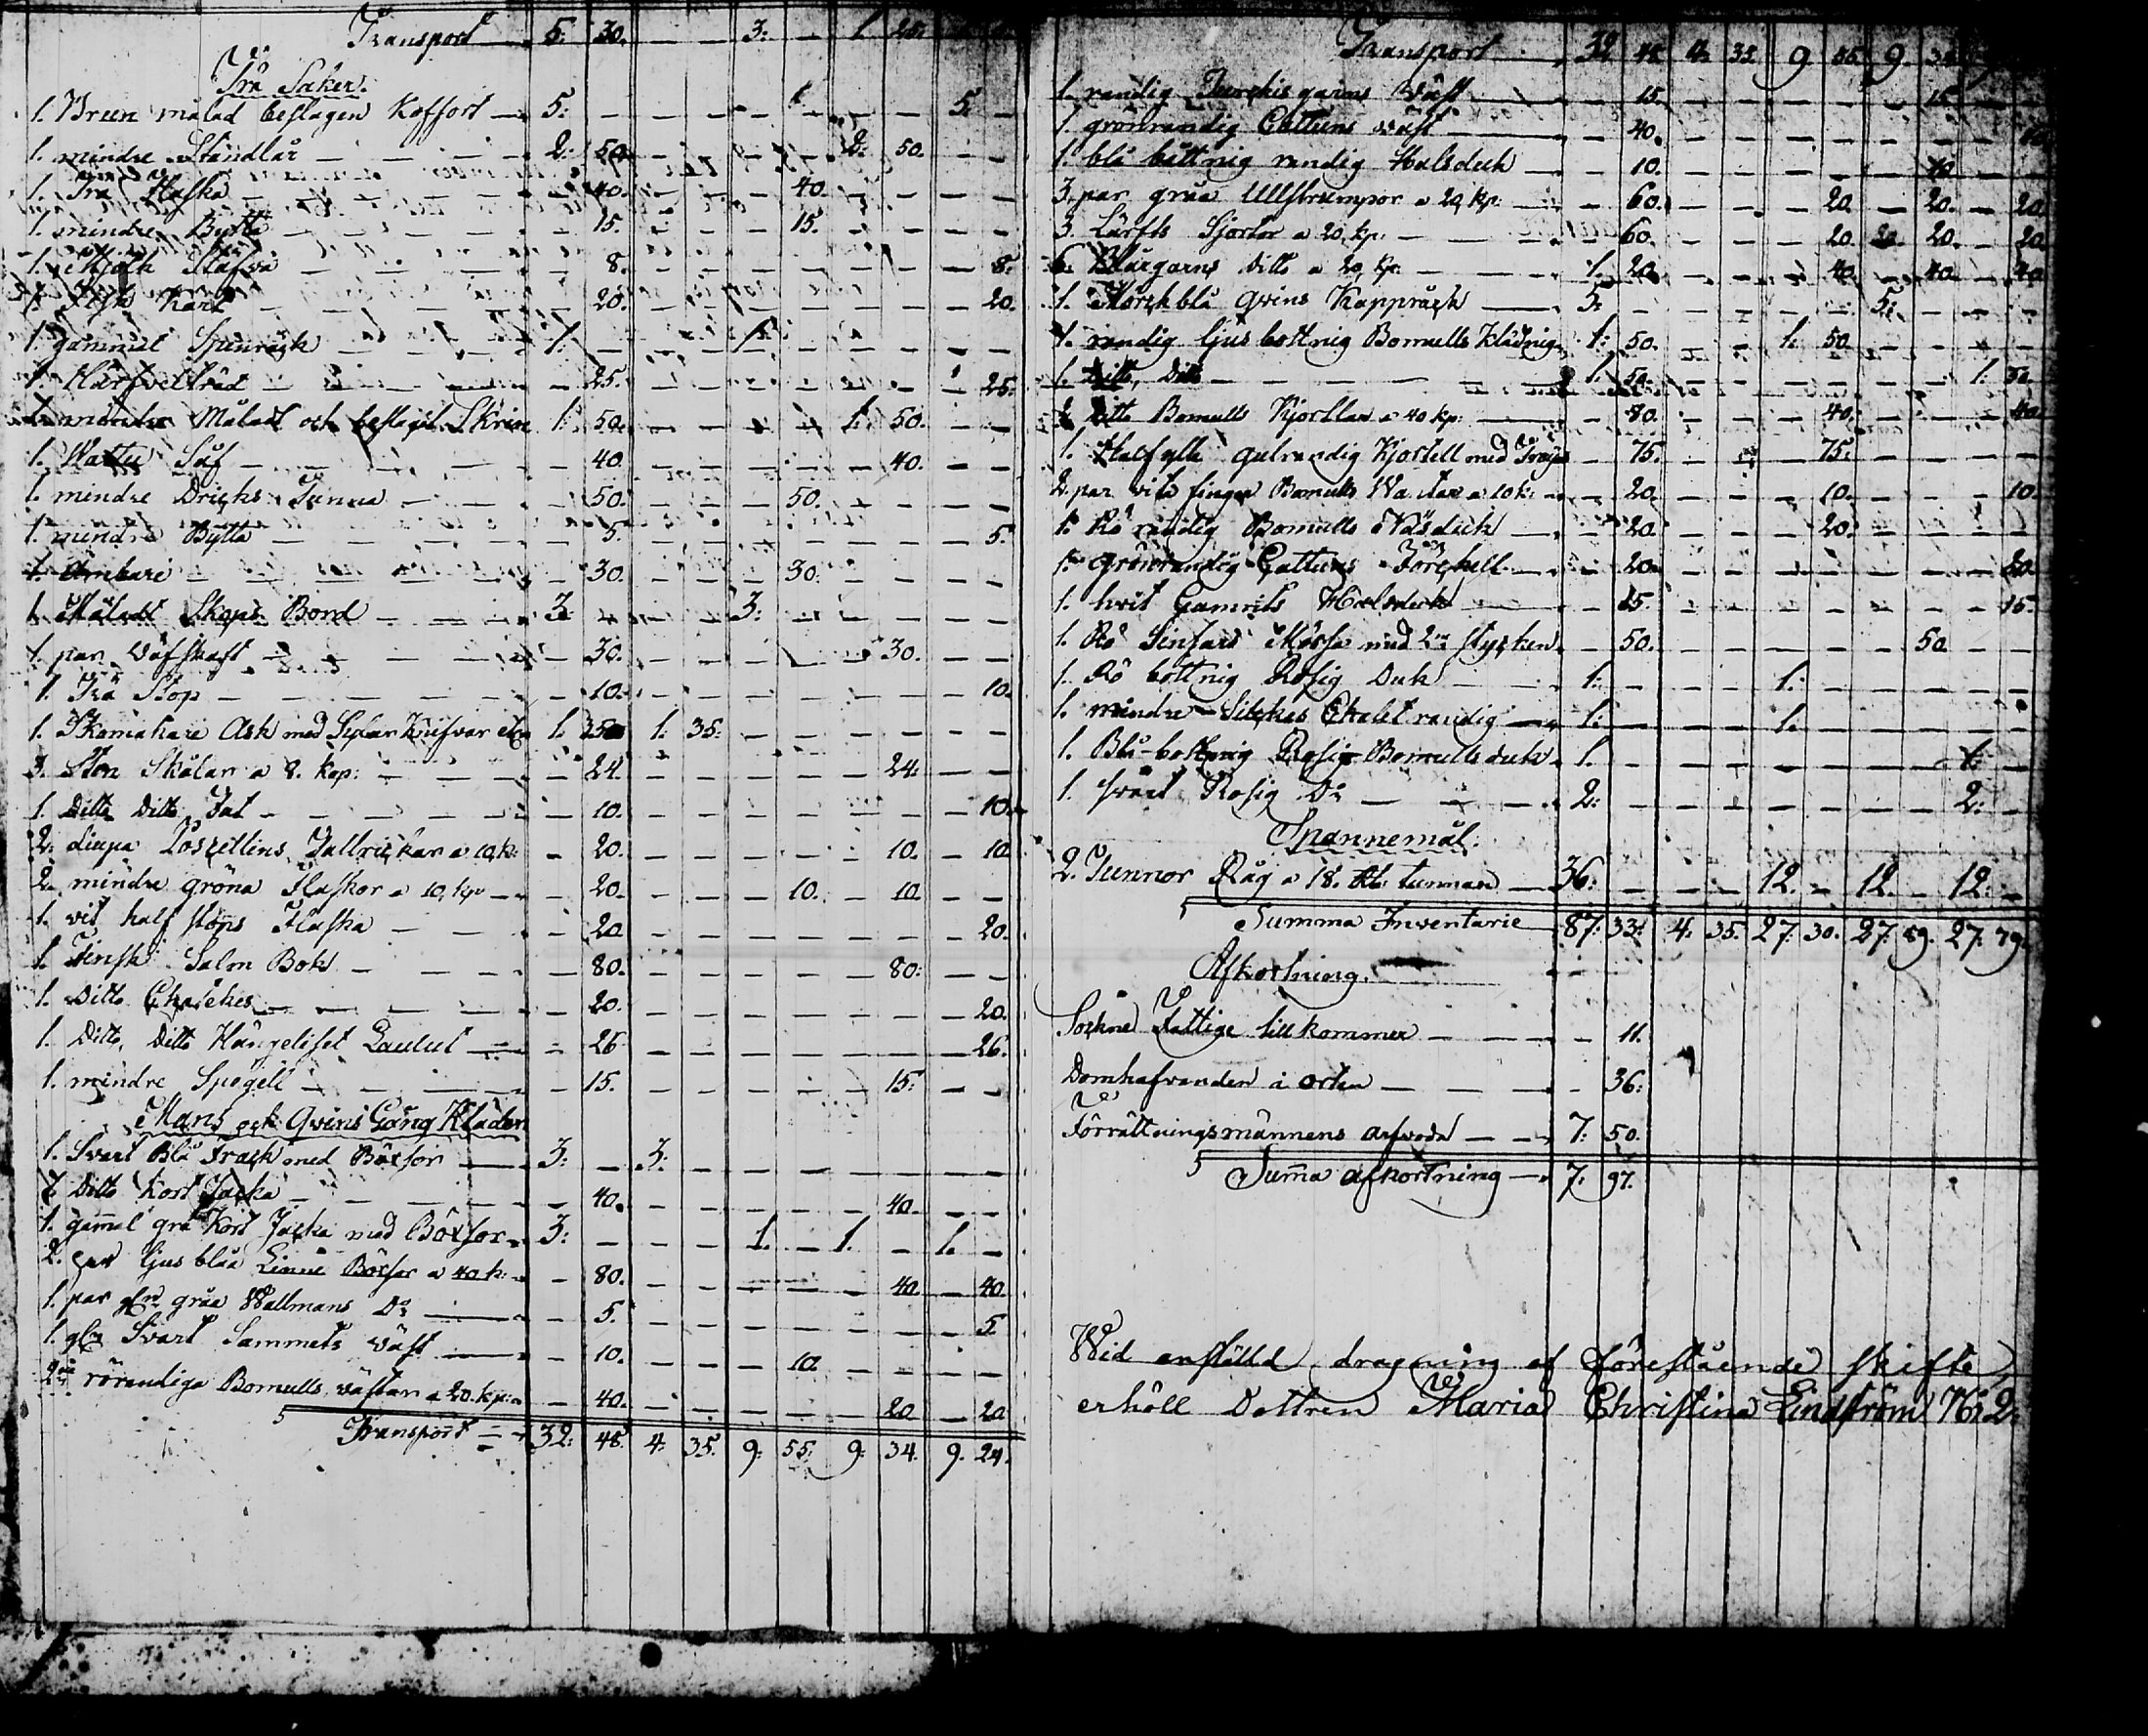 Transport 5: 30. — — 3: — 1. 25.
Trä Saker.
1. Brun målad beslagen Koffort — 5: — — — — — — — 5. —
1. mindre Ståndlår — 2: 50. — — — — 2: 50. — —
1. Trä Flaska — — 40. — — — 40. — — — —
1. mindre Bytta — — 15. — — — 15. — — — —
1. Mjölk Stäfva — — 8. — — — — — — — 8.
1. Kar — — 20. — — — — — — — 20.
1. gammel Spinråck — 1. — — — 1. — — — — —
1. Härfvelträd — — 25. — — — — — — — 25.
1. mindre Målad och beslagit Skrin 1: 50. — — — — 1. 50. — —
1. Wattu Såf — — 40. — — — — — 40. — —
1. mindre Dricks Tunna — — 50. — — — 50. — — — —
1. mindre Bytta — — 5. — — — — — — — 5.
1. Ämbare — — 30. — — — 30. — — — —
1. Måladt Skops Bord — 3: — — — 3: — — — — —
1. par Väfskaft — — 30. — — — — — 30. — —
1. Trä Stop — — 10. — — — — — — — 10.
1. Skomakare Ask med Sylar Knifvar etc 1. 35 1: 35: — — — — — —
3. Sten Skålar a 8. kop: — — 24. — — — — — 24: — —
1. Ditto Ditto Fat — — 10. — — — — — — — 10.
2. diupa Poszellins Tallrickar a 10 k: — 20. — — — — — 10. — 10
2. mindre gröna Flaskor a 10, kp — — 20. — — — 10. — 10. — —
1. vit half stops Flaska — — 20 — — — — — — — 20.
1. Finsk Salm Bok — — 80. — — — — — 80: — —
1. Ditto Chatekes — — 20. — — — — — — — 20.
1. Ditto, Ditto Hängeliset Laulut — — 26 — — — — — — — 26.
1. mindre Spegell — — 15. — — — — — 15: — —
Mans och Qvins Gång Kläder
1. Svart Blå Frack med Böxsor — 3: — 3: — — — — — — —
1. Ditto Kort Jacka — — 40. — — — — — 40. — —
1. gam̄al grå Kort Jacka med Böxsor — 3: — — — 1. — 1. — 1. —
2. par ljus blåa Linne Böxsor a 40 k: — 80. — — — — — 40. — 40.
1. par gråa Wallmans Do — — 5. — — — — — — — 5.
1. Svart Sammets väst — — 10. — — — 10. — — — —
2 rörandiga Bomulls västar a 20. kp: — 40. — — — — — 20 — 20
Transport — 32: 48. 4: 35. 9: 55: 9: 34. 9. 24.
Transport — 32 48. 4: 35. 9 55. 9. 34
1. randig Turckis garns Väst — 15. — — — — — 15. — —
1. grönrandig Cattuns väst — — 40. — — — — — — —
1. blå båttnig randig Halsduk — — 10. — — — — — 10 — —
3. par gråa Ullstrumpor a 20, kp: — — 60. — — — 20. — 20. — 20.
3. Lärfts Sjortor a 20, kp: — — 60. — — — 20. 20. — 20.
6. Blårgarns Ditto a 20, kp: — 1. 20. — — — 40. — 40. — 40
1. Mörckblå Qvins Kappråck — 5: — — — — — 5: — — —
1. randig ljus bottnig Bomulls Klädnig 1: 50. — — 1. 50. — — — —
1. Ditto, Ditto — 1. 50. — — — — — — 1. 50.
2 Ditto Bomulls Kjortlar a 40 kp: — — 80. — — — 40. — — — 40.
1. Halfylle gulrandig Kjortell med Tröja — 75. — — — 75: — — — —
2. par vita finger Bomulls Wantar a 10 k: — 20. — — — 10. — — — 10.
1. Rö randig Bomulls Näsduk — — 20. — — — 20. — — — —
1. grönrandig Cattuns Förekell — — 20 — — — — — — — 20
1. hvit Halsduk — — 15. — — — — — — — 15.
1. Rö Mössa med 2ne stycken. — 50. — — — — — 50. — —
1. Rö bottnig Rosig Duk — 1: — — — 1: — — — — —
1. mindre Silckes Chalet randig — 1: — — — 1. — — — — —
1. Blå-bottnig Rosig Bomulls duk. 1. — — — — — — — 1: —
1. svart Rosig Do — 2: — — — — — — — 2: —
Spannemål.
2. Tunnor Råg a 18. Rb: tunnan — 36: — — — 12. — 12. — 12: —
Summa Inventarie 87: 33: 4: 35. 27: 30. 27: 89. 27: 79.
Afkortning.
Sockne Fattige tillkommer — — 11.
Domhafvanden i orten — — 36:
Förrättningsmännens arfvode — 7: 50.
Sum̄a afkortning — 7: 97.
Wid anställd dragning af förestående skifte,
erhöll Dottren Maria Christina Lindström No 2.